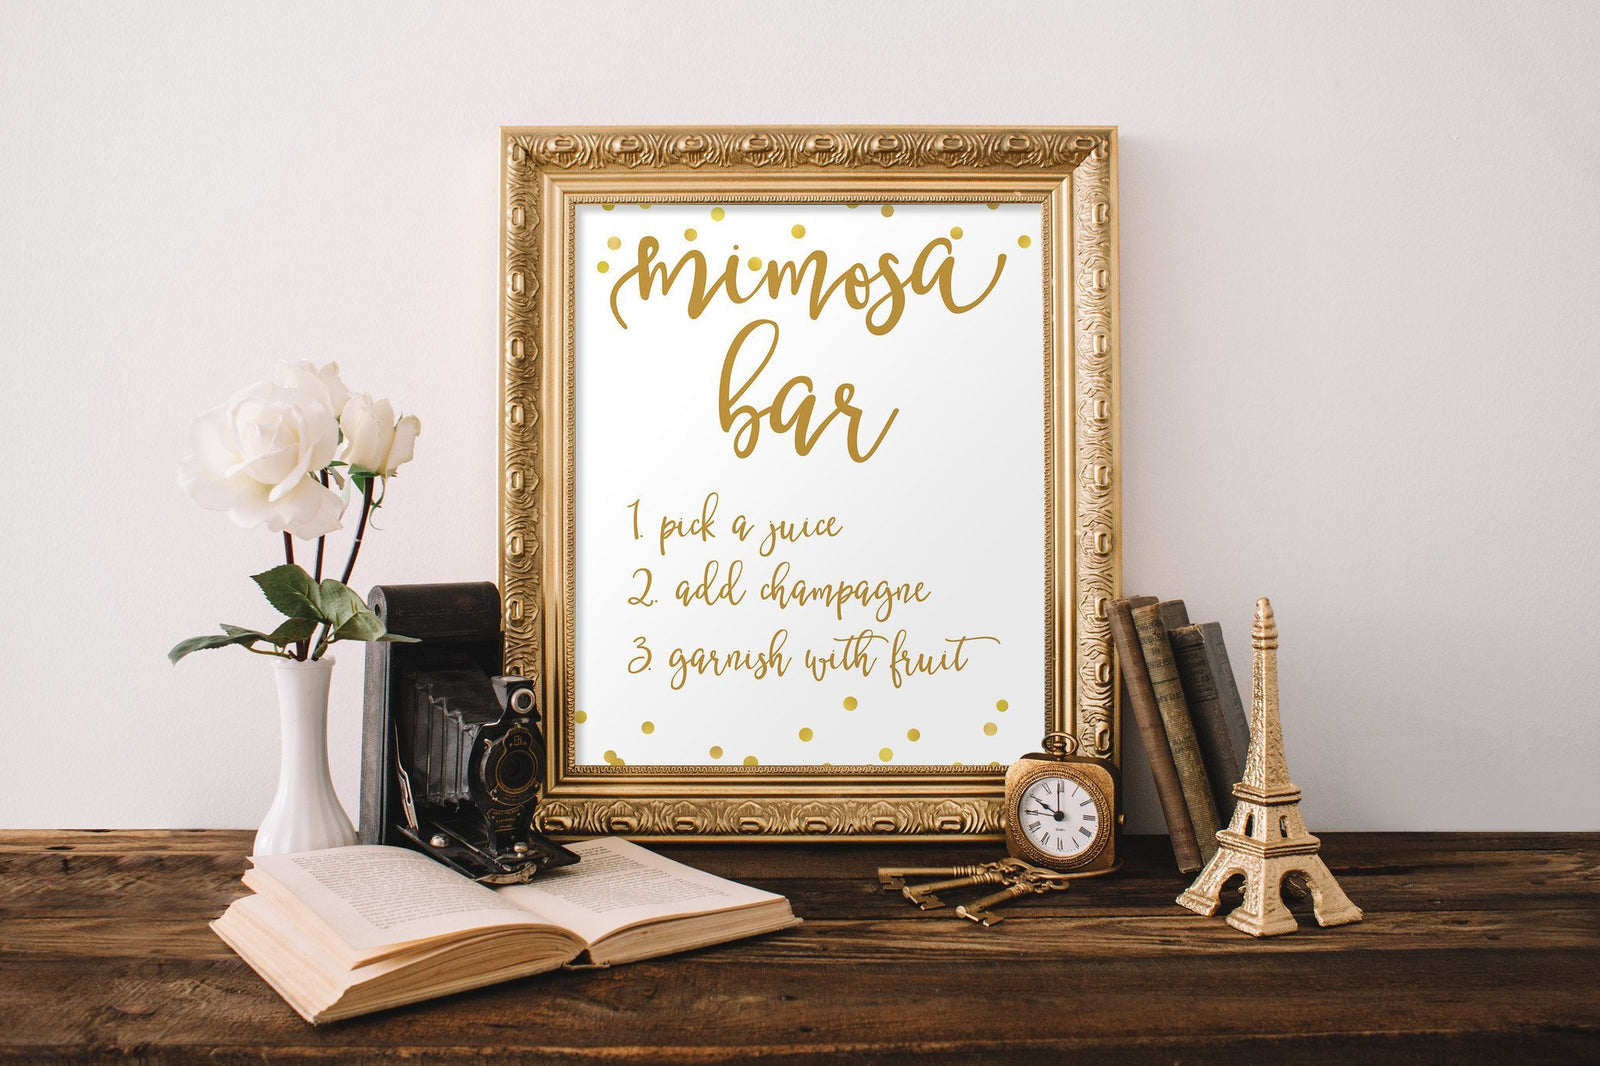 mimosa
bar
1. pick a juice
2. add champagne
3. garnish with fruit